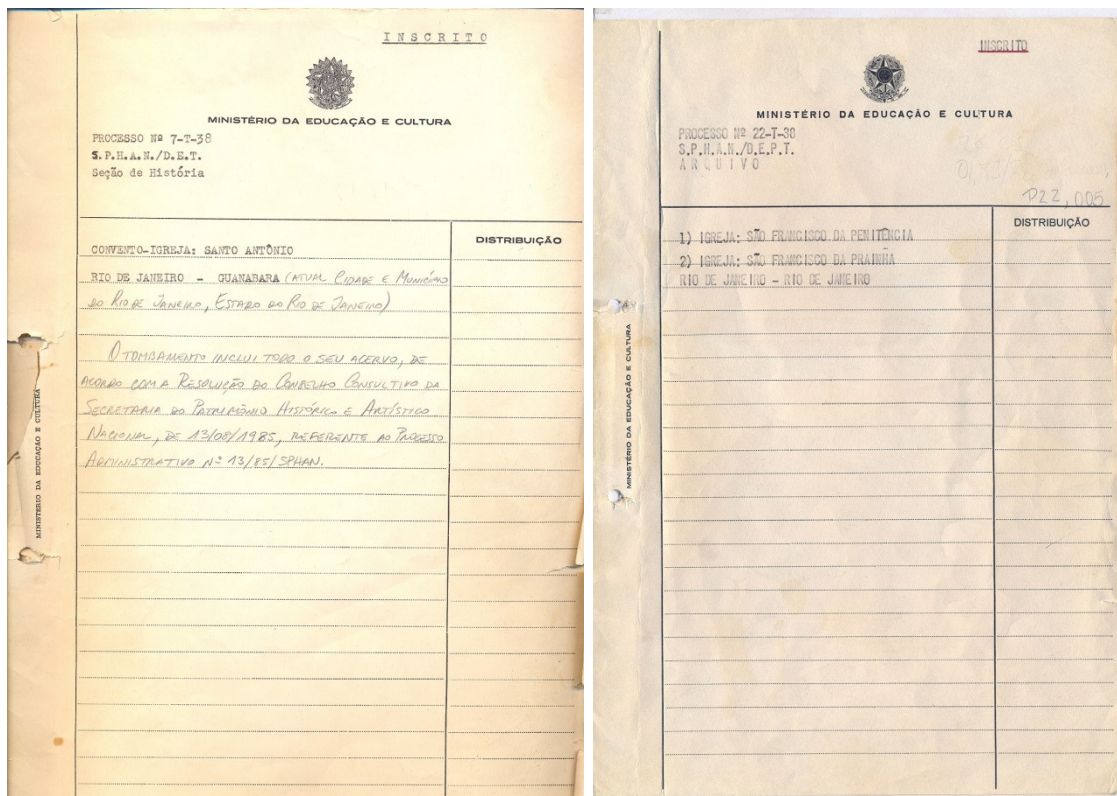 INSCRITO
MINISTÉRIO DA EDUCAÇÃO E CULTURA
PROCESSO Nº 7-T-38
S.P.H.A.N./D.E.T.
Seção de História
DISTRIBUIÇÃO
CONVENTO-IGREJA: SANTO ANTÔNIO
RIO DE JANEIRO - GUANABARA (ATUAL CIDADE E MUNICÍPIO
DO RIO DE JANEIRO, ESTADO DO RIO DE JANEIRO)
O TOMBAMENTO INCLUI TODO O SEU ACERVO, DE
ACORDO COM A RESOLUÇÃO DO CONSELHO CONSULTIVO DA
SECRETARIA DO PATRIMÔNIO HISTÓRICO E ARTÍSTICO
NACIONAL, DE 13/08/1985, REFERENTE AO PROCESSO
ADMINISTRATIVO Nº 13/85/SPHAN.
MINISTERIO DA EDUCAÇÃO E CULTURA
INSCRITO
MINISTÉRIO DA EDUCAÇÃO E CULTURA
PROCESSO Nº 22-T-38
S.P.H.A.N./D.E.P.T.
ARQUIVO
P22,005
DISTRIBUIÇÃO
1) IGREJA: SÃO FRANCISCO DA PENITÊNCIA
2) IGREJA: SÃO FRANCISCO DA PRAINHA
RIO DE JANEIRO - RIO DE JANEIRO
MINISTÉRIO DA EDUCAÇÃO E CULTURA